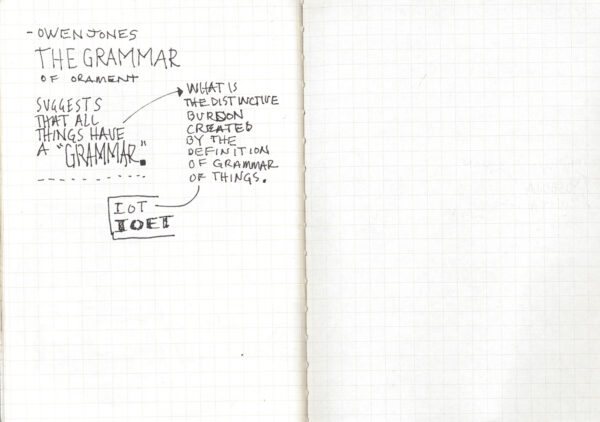 - OWEN JONES
THE GRAMMAR
OF ORAMENT
SUGGESTS
THAT ALL
THINGS HAVE
A "GRAMMAR."
WHAT IS
THE DISTINCTIVE
BURDON
CREATED
BY THE
DEFINITION
OF GRAMMAR
OF THINGS.
IOT
IOET